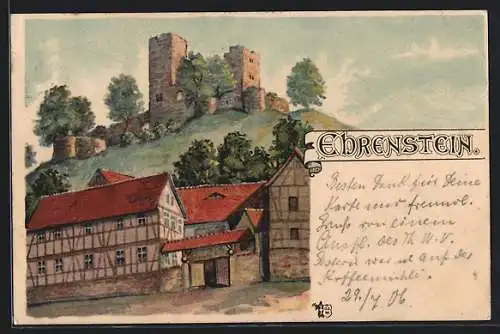 EHRENSTEIN.
Besten Dank für Deine
Karte und freundl.
Gruss von einem
Ausfl. des
war auf der
Kaffeemühle.
29./7 06.